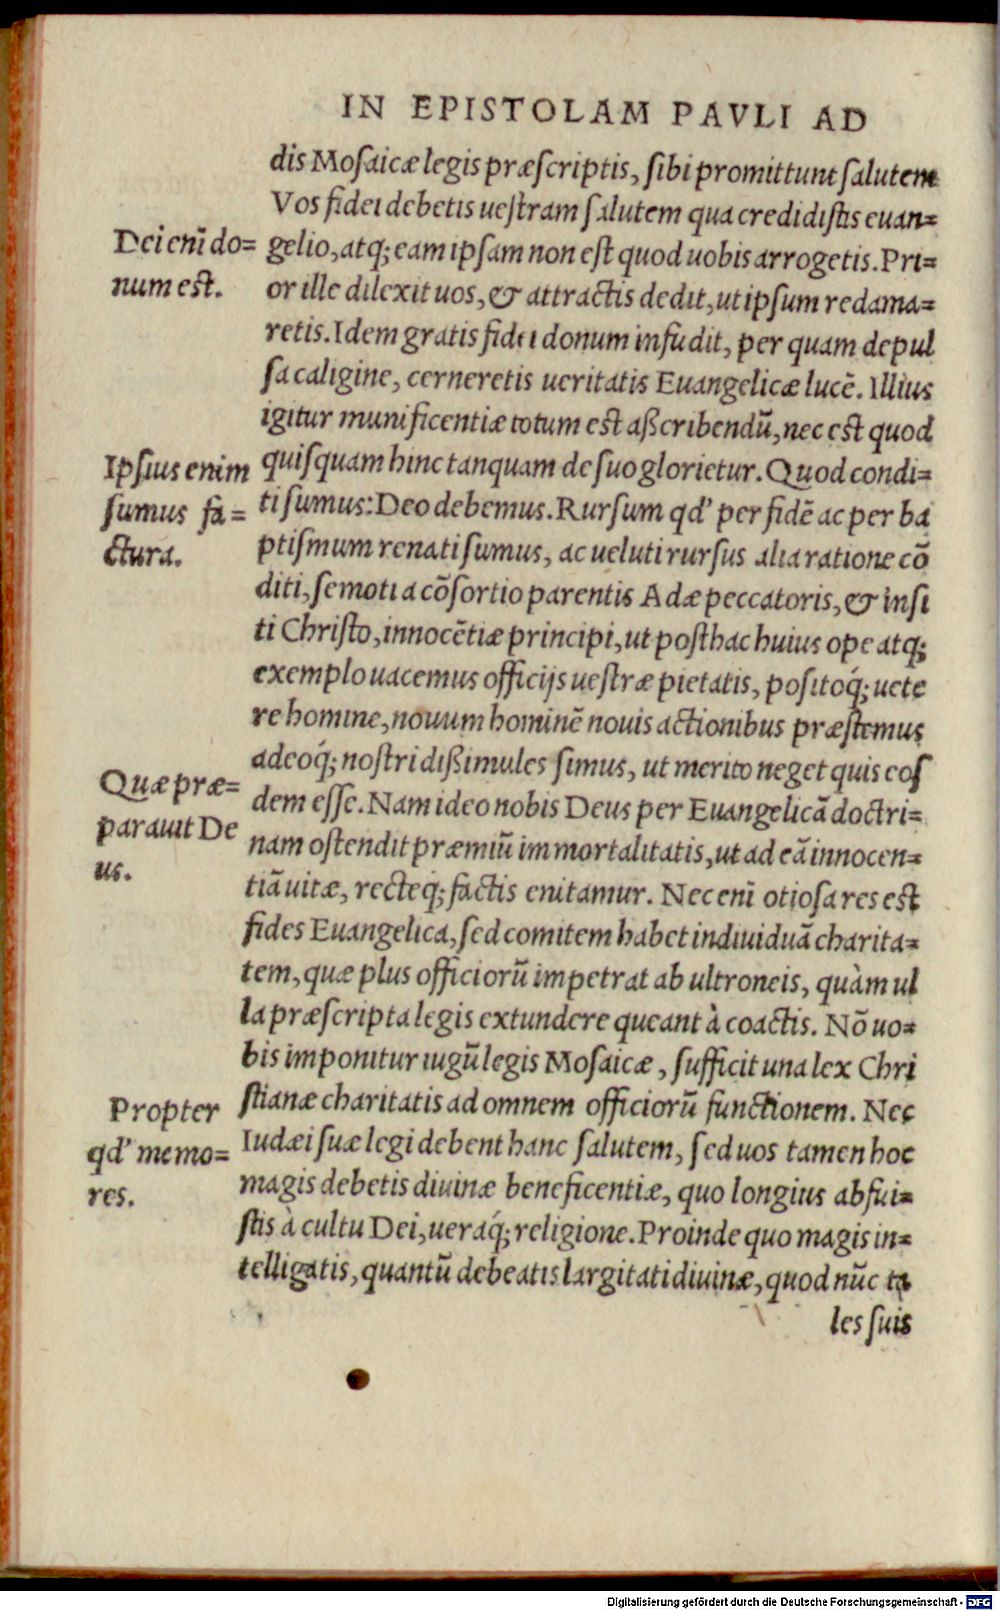 IN EPISTOLAM PAVLI AD
dis Mosaicæ legis præscriptis, sibi promittunt salutem
Vos fidei debetis uestram salutem qua credidistis euan=
gelio, atq; eam ipsam non est quod uobis arrogetis. Pri=
or ille dilexit uos, & attractis dedit, ut ipsum redama=
retis. Idem gratis fidei donum infudit, per quam depul
sa caligine, cerneretis ueritatis Euangelicæ lucẽ. Illius
igitur munificentiæ totum est aßcribendũ, nec est quod
quisquam hinc tanquam de suo glorietur. Quod condi=
ti sumus: Deo debemus. Rursum qđ per fidẽ ac per ba
ptismum renati sumus, ac ueluti rursus alia ratione cõ
diti, semoti a cõsortio parentis Adæ peccatoris, & insi
ti Christo, innocẽtiæ principi, ut posthac huius ope atq;
exemplo uacemus officijs uestræ pietatis, positoq́; uete
re homine, nouum hominẽ nouis actionibus præstemus
adeoq́; nostri dißimules simus, ut merito neget quis eos
dem esse. Nam ideo nobis Deus per Euangelicã doctri=
nam ostendit præmiũ immortalitatis, ut ad eã innocen=
tiã uitæ, recteq́; factis enitamur. Nec enĩ otiosa res est
fides Euangelica, sed comitem habet indiuiduã charita=
tem, quæ plus officiorũ impetrat ab ultroneis, quàm ul
la præscripta legis extundere queant à coactis. Nõ uo=
bis imponitur iugũ legis Mosaicæ, sufficit una lex Chri
stianæ charitatis ad omnem officiorũ functionem. Nec
Iudæi suæ legi debent hanc salutem, sed uos tamen hoc
magis debetis diuinæ beneficentiæ, quo longius abfui=
stis à cultu Dei, ueraq́; religione. Proinde quo magis in=
telligatis, quantũ debeatis largitati diuinæ, quod nũc ta
les suis
Dei enĩ do=
num est.
Ipsius enim
sumus fa=
ctura.
Quæ præ=
parauit De
us.
Propter
qđ memo=
res.
Digitalisierung gefördert durch die Deutsche Forschungsgemeinschaft - DFG